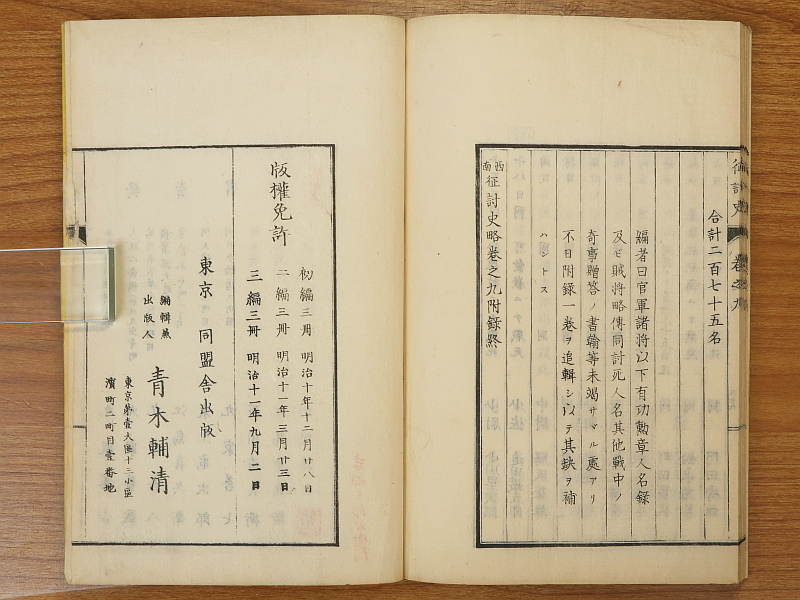 征討史
卷之九
合計二百七十五名
編者曰官軍諸将以下有功勲章人名録
及ヒ賊将略傳同討死人名其他戰中ノ
奇事贈答ノ書翰等未竭サヾル處アリ
不日附録一卷ヲ追輯シ以テ其缺ヲ補
ハントス
西南征討史略卷之九附録終
版權免許
初編三冊 明治十年十二月廿八日
二編三冊 明治十一年三月廿三日
三編三冊 明治十一年九月二日
東京 同盟舎出版
編輯兼出版人 青木輔清
東京第壹大區十三小區
濱町二町目壹番地